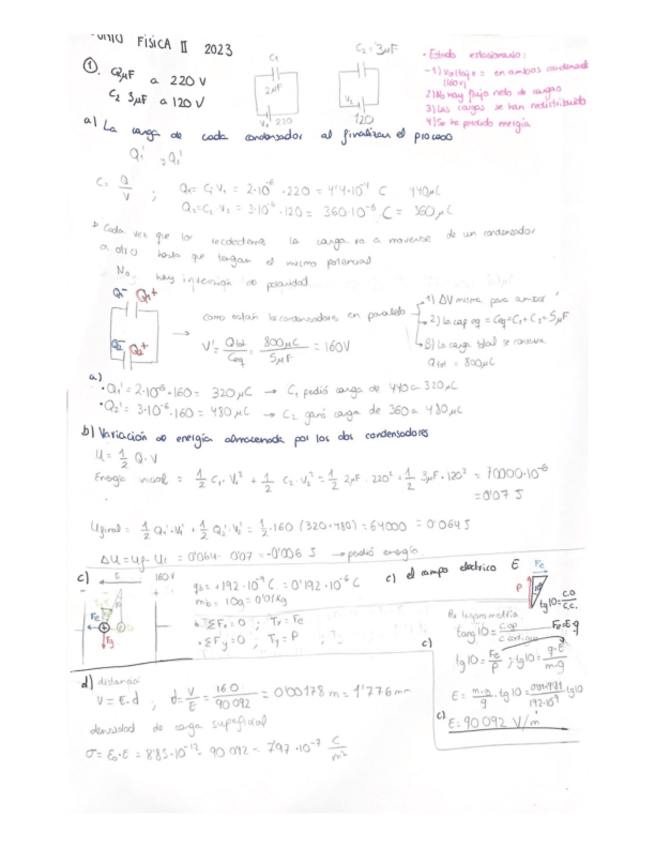 JUNIO FÍSICA II 2023
① C₁ 2μF a 220 V
C₂ 3μF a 120 V
C₁
2μF
V₁ 220
C₂ = 3μF
V₂
120
• Estado estacionario:
-1) Voltaje = en ambos condensad
(160V)
2) No hay flujo neto de cargas
3) Las cargas se han redistribuido
4) Se ha perdido energía
a) La carga de cada condensador al finalizar el proceso
Q₁' , Q₂'
C = Q/V ; Q₁ = C₁V₁ = 2·10⁻⁶ · 220 = 4'4·10⁻⁴ C 440μC
Q₂ = C₂·V₂ = 3·10⁻⁶ · 120 = 360·10⁻⁶ C = 360μC
Cada vez que los reconectemos la carga va a moverse de un condensador
a otro hasta que tengan el mismo potencial
No hay inversión de polaridad
Q₁⁻ Q₁⁺
Q₂⁻ Q₂⁺
→ como están los condensadores en paralelo
1) ΔV misma para ambos
2) la cap eq = Ceq = C₁ + C₂ = 5μF
3) La carga total se conserva
Qtot = 800μC
V' = Qtot/Ceq = 800μC/5μF = 160V
a)
• Q₁' = 2·10⁻⁶ · 160 = 320μC → C₁ perdió carga de 440 a 320μC
• Q₂' = 3·10⁻⁶ · 160 = 480μC → C₂ ganó carga de 360 a 480μC
b) Variación de energía almacenada por los dos condensadores
U = 1/2 Q·V
Energía inicial = 1/2 C₁·V₁² + 1/2 C₂·V₂² = 1/2 2μF · 220² + 1/2 3μF · 120² = 70000·10⁻⁶
= 0'07 J
Ufinal = 1/2 Q₁'·V₁' + 1/2 Q₂'·V₂' = 1/2 · 160 (320+480) = 64000 = 0'064 J
ΔU = Uf - Ui = 0'064 - 0'07 = -0'006 J → perdió energía
c)
E
160 V
Fe
Fg
qb = +192·10⁻⁹ C = 0'192·10⁻⁶ C
mb = 10g = 0'01 Kg
• ΣFx = 0 ; Tx = Fe
• ΣFy = 0 ; Ty = P
c) el campo electrico E
Fe
P
10°
tg10 = C.O/C.C.
Por trigonometría
tang 10 = c.op/c.contiguo
Fe = E·q
c)
tg10 = Fe/P ; tg10 = q·E/m·g
E = m·g/q · tg10 = 0'01·9'81/192·10⁻⁹ tg10
c) E = 90 092 V/m
d) distancia
V = E·d ; d = V/E = 160/90 092 = 0'00178 m = 1'776 mm
densidad de carga superficial
σ = ε₀·E = 8'85·10⁻¹² · 90 092 = 7'97·10⁻⁷ C/m²